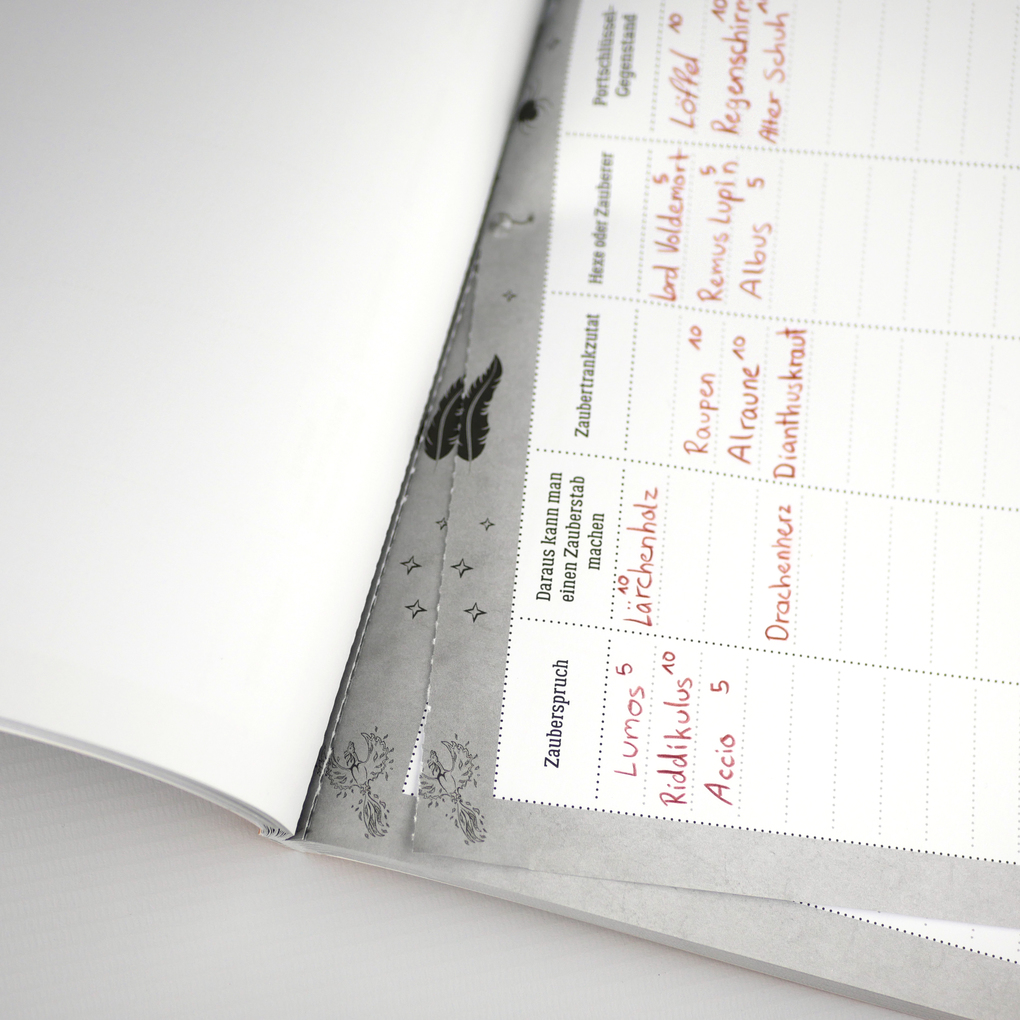 Zauberspruch
Lumos 5
Riddikulus 10
Accio 5
Daraus kann man
einen Zauberstab
machen
Lärchenholz 10
Drachenherz
Zaubertrankzutat
Raupen 10
Alraune 10
Dianthuskraut
Hexe oder Zauberer
Lord Voldemort 5
Remus Lupin 5
Albus 5
Portschlüssel-
Gegenstand
Löffel 10
Regenschirm 10
Alter Schuh